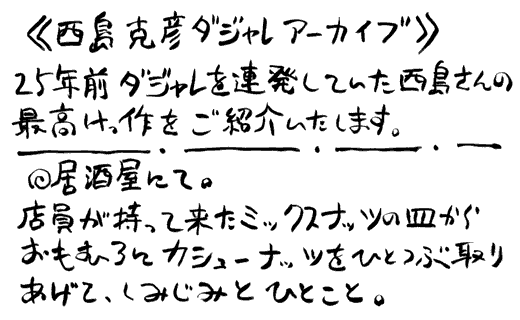 ≪西島克彦ダジャレアーカイブ≫
25年前ダジャレを連発していた西島さんの
最高けっ作をご紹介いたします。
◎居酒屋にて。
店員が持って来たミックスナッツの皿から
おもむろにカシューナッツをひとつぶ取り
あげて、しみじみとひとこと。